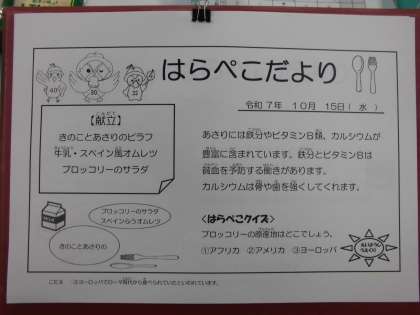 はらぺこだより
令和 7年 10月 15日(水)
【献立】
きのことあさりのピラフ
牛乳・スペイン風オムレツ
ブロッコリーのサラダ
あさりには鉄分やビタミンB類、カルシウムが
豊富に含まれています。鉄分とビタミンBは
貧血を予防する働きがあります。
カルシウムは骨や歯を強くしてくれます。
ブロッコリーのサラダ
スペインふうオムレツ
きのことあさりの
<はらぺこクイズ>
ブロッコリーの原産地はどこでしょう。
①アフリカ ②アメリカ ③ヨーロッパ
こたえ ③ヨーロッパでローマ時代から食べられていたといわれています。